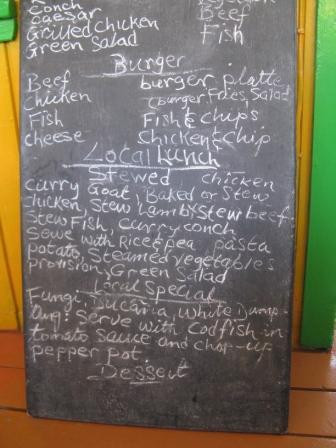 Conch
Caesar Beef
Grilled Chicken Fish
Green Salad
Burger
Beef burger platte
Chicken (burger Fries, Salad
Fish Fish & Chips
cheese Chicken & chip
Local Lunch
Stewed chicken
curry Goat, Baked or Stew
Chicken, Stew lamb, Stew beef
Stew Fish, curry conch
Seve with Rice & pea pasta
potato, Steamed vegetables
provision, Green Salad
Local Special
Fungi, Ducana, White Dump-
ling: Serve with Codfish in
tomato Sauce and chop-up
pepper pot.
Dessert